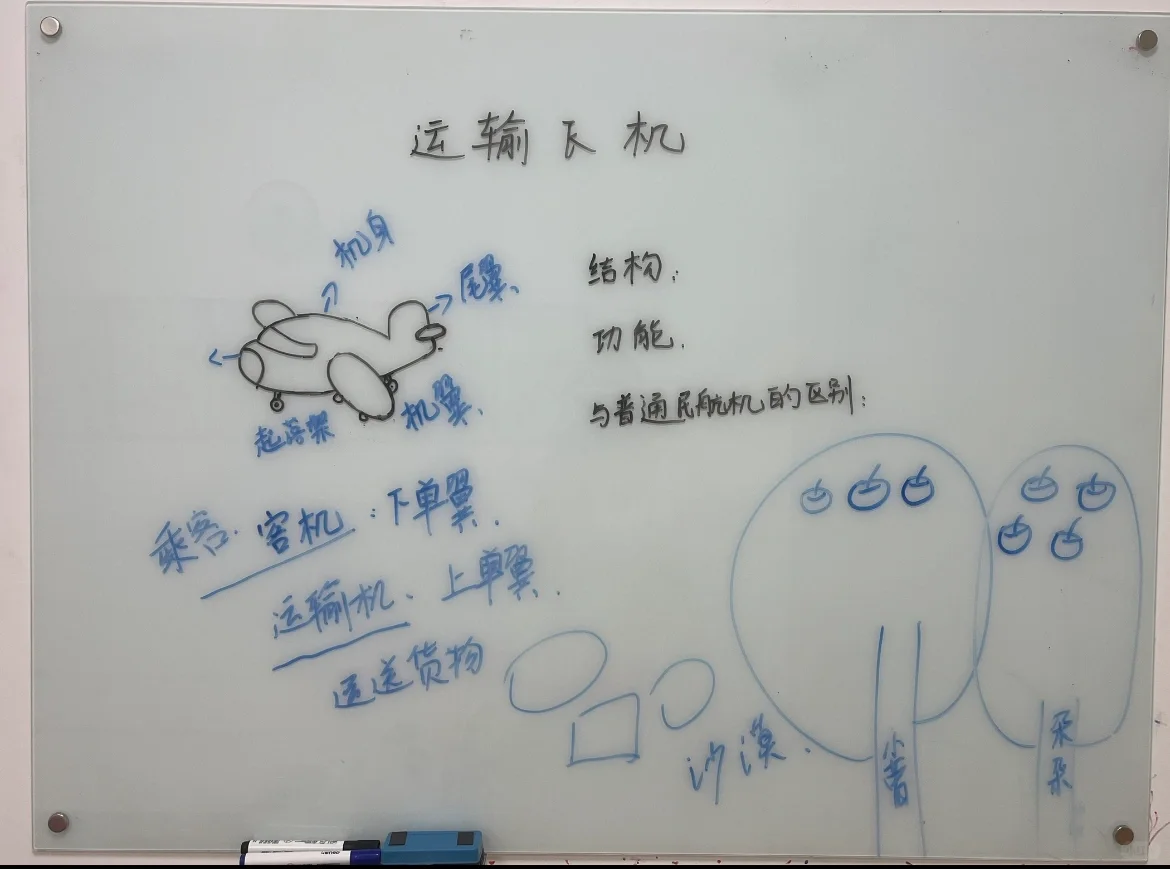 运输飞机
机身
尾翼、
结构：
功能.
与普通民航机的区别：
机翼.
起落架
乘客.客机：下单翼.
运输机、上单翼.
运送货物
沙漠.
朵朵